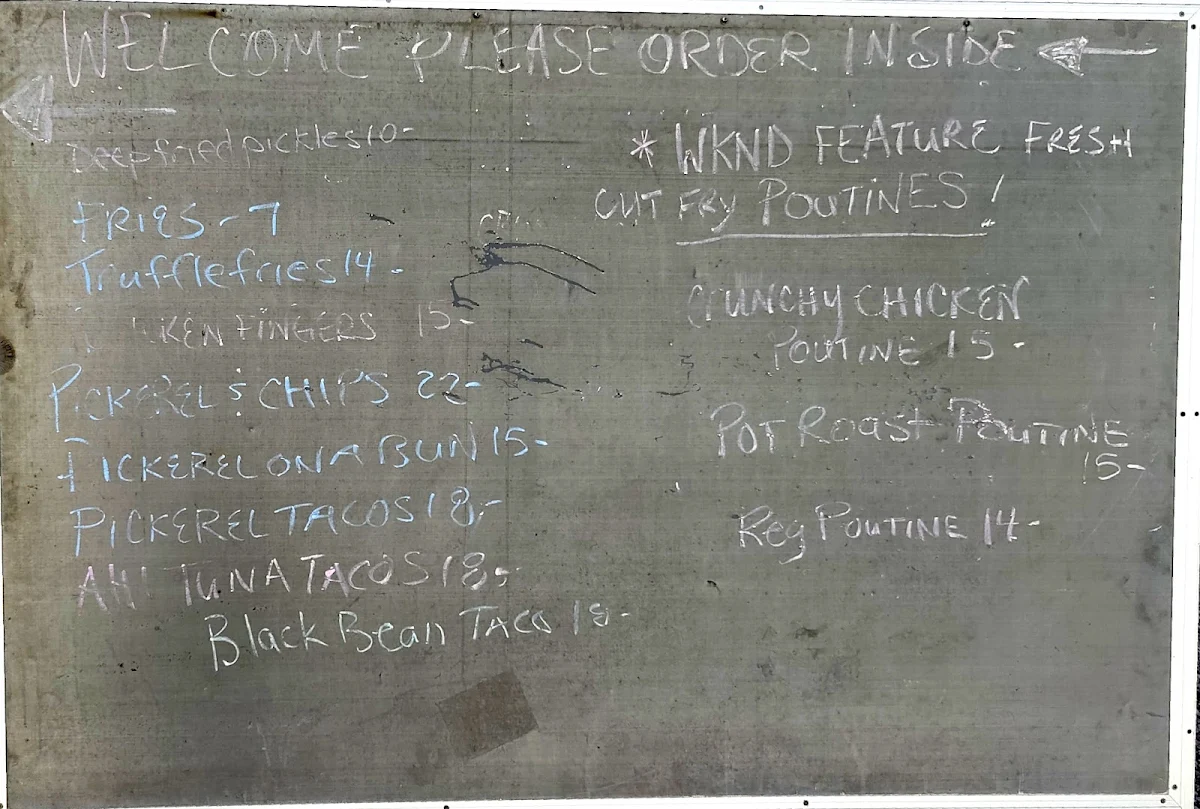 WELCOME PLEASE ORDER INSIDE
Deepfriedpickles 10-
FRIES - 7
Trufflefries 14-
KEN FINGERS 15-
PICKEREL & CHIPS 22-
PICKEREL ON A BUN 15-
PICKEREL TACOS 18-
AHI TUNA TACOS 18-
Black Bean TACO 18-
* WKND FEATURE FRESH
CUT FRY POUTINES!
CRUNCHY CHICKEN
POUTINE 15-
POT ROAST POUTINE
15-
Reg POUTINE 14-